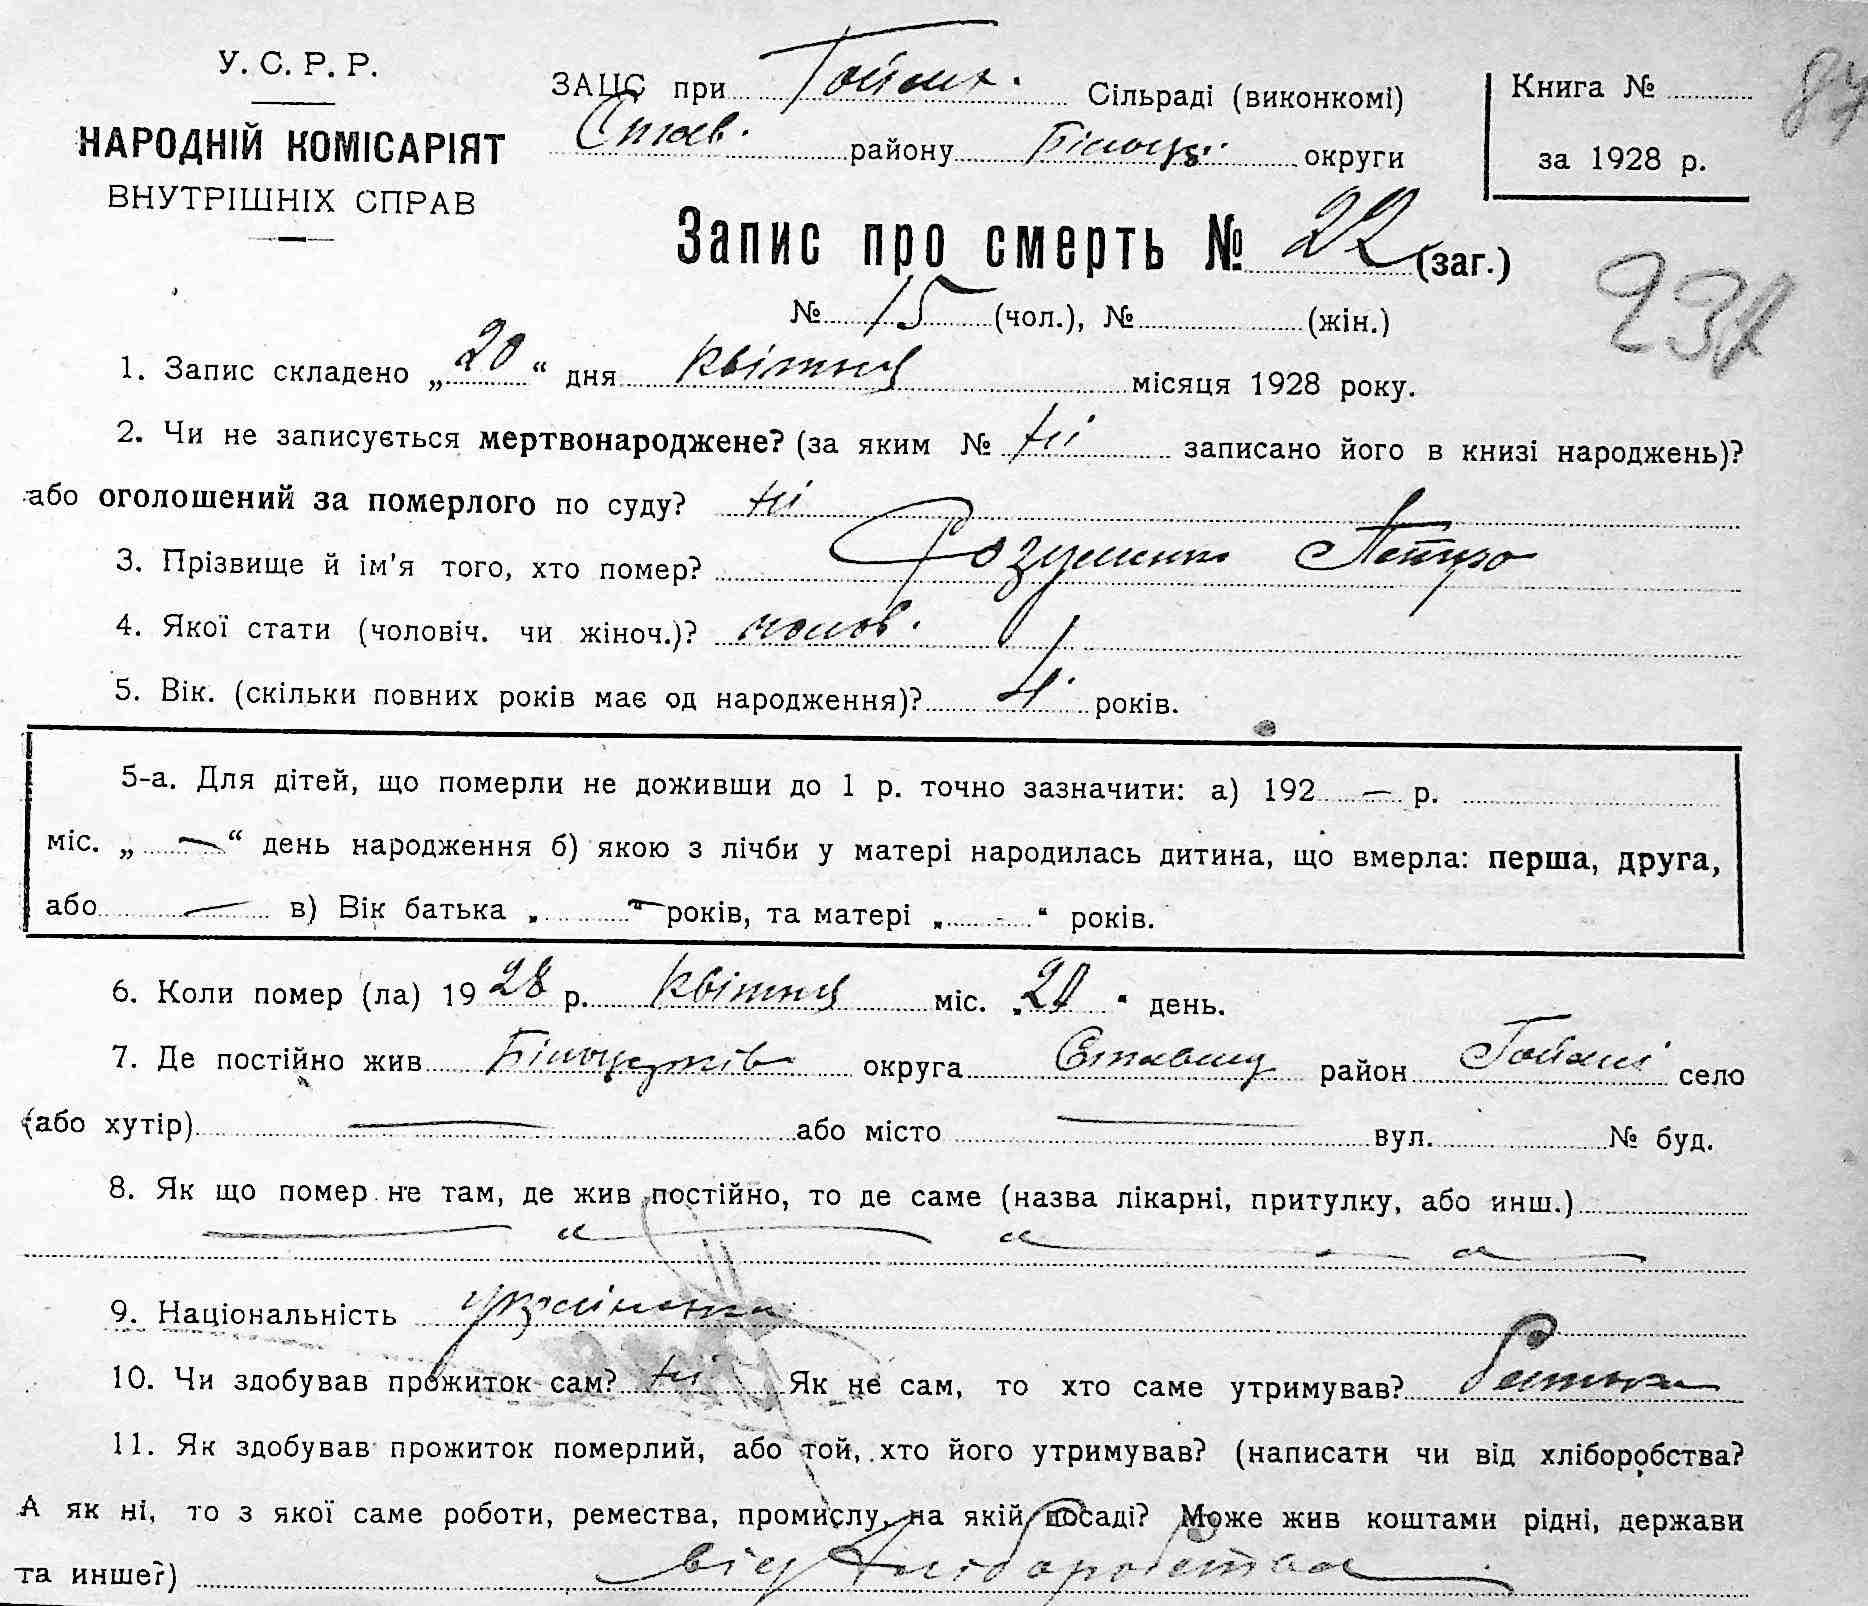 У. С. Р. Р.
НАРОДНІЙ КОМІСАРІЯТ
ВНУТРІШНІХ СПРАВ
ЗАЦС при Гойск. Сільраді (виконкомі)
Став. району Білоцер. округи
Книга №
за 1928 р.
87
Запис про смерть № 22 (заг.)
№ 15 (чол.), № (жін.)
237
1. Запис складено „20“ дня квітня місяця 1928 року.
2. Чи не записується мертвонароджене? (за яким № ні записано його в книзі народжень)?
або оголошений за померлого по суду? ні
3. Прізвище й ім'я того, хто помер? Розуменко Петро
4. Якої стати (чоловіч. чи жіноч.)? чолов.
5. Вік. (скільки повних років має од народження)? 4 років.
5-а. Для дітей, що померли не доживши до 1 р. точно зазначити: а) 192 — р.
міс. „ — “ день народження б) якою з лічби у матері народилась дитина, що вмерла: перша, друга,
або — в) Вік батька „ — “ років, та матері „ - “ років.
6. Коли помер (ла) 1928 р. квітня міс. „20“ день.
7. Де постійно жив Білоцерків округа Ставищ район село
(або хутір) — або місто — вул. № буд.
8. Як що помер не там, де жив постійно, то де саме (назва лікарні, притулку, або инш.)
9. Національність українська
10. Чи здобував прожиток сам? ні Як не сам, то хто саме утримував? батько
11. Як здобував прожиток померлий, або той, хто його утримував? (написати чи від хліборобства?
А як ні, то з якої саме роботи, ремества, промислу, на якій посаді? Може жив коштами рідні, держави
та инше?) від хліборобства